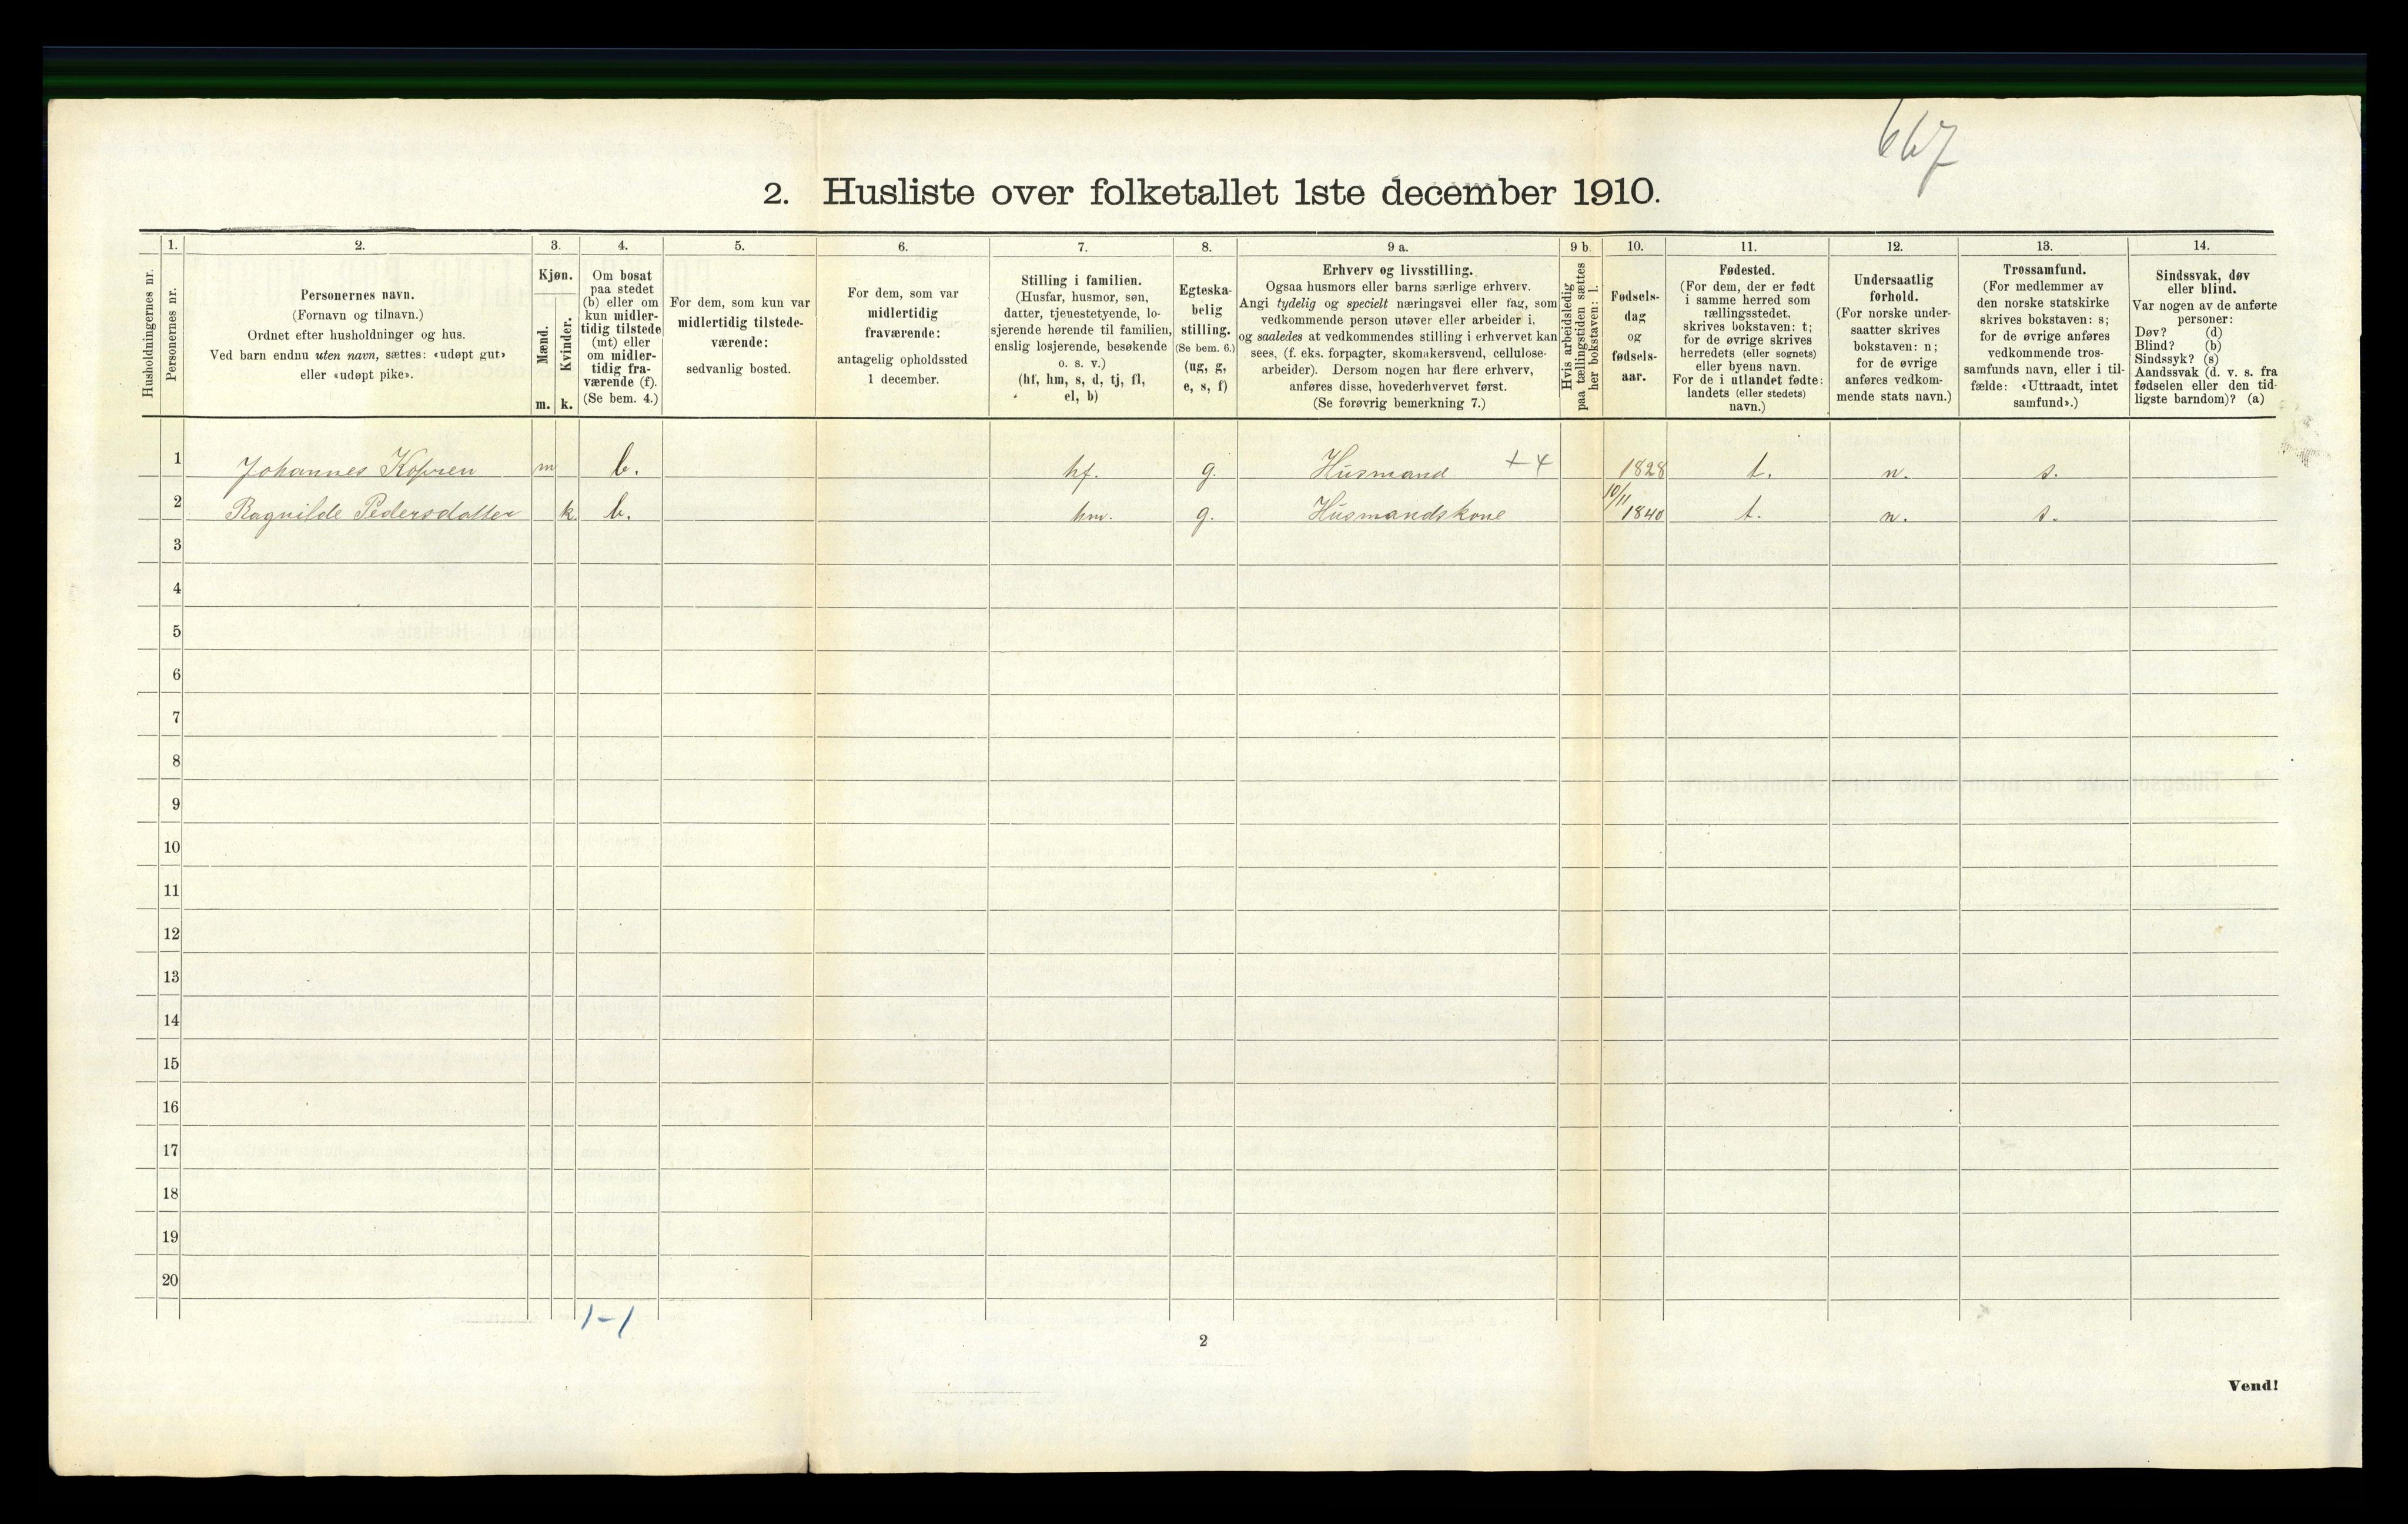 667
2. Husliste over folketallet 1ste december 1910.
Husholdningernes nr.
1.
Personernes nr.
2.
Personernes navn.
(Fornavn og tilnavn.)
Ordnet efter husholdninger og hus.
Ved barn endnu uten navn, sættes: «udøpt gut»
eller «udøpt pike».
3.
Kjøn.
Mænd.
m.
Kvinder.
k.
4.
Om bosat
paa stedet
(b) eller om
kun midler-
tidig tilstede
(mt) eller
om midler-
tidig fra-
værende (f).
(Se bem. 4.)
5.
For dem, som kun var
midlertidig tilstede-
værende:
sedvanlig bosted.
6.
For dem, som var
midlertidig
fraværende:
antagelig opholdssted
1 december.
7.
Stilling i familien.
(Husfar, husmor, søn,
datter, tjenestetyende, lo-
sjerende hørende til familien,
enslig losjerende, besøkende
o. s. v.)
(hf, hm, s, d, tj, fl,
el, b)
8.
Egteska-
belig
stilling.
(Se bem. 6.)
(ug, g,
e, s, f)
9 a.
Erhverv og livsstilling.
Ogsaa husmors eller barns særlige erhverv.
Angi tydelig og specielt næringsvei eller fag, som
vedkommende person utøver eller arbeider i,
og saaledes at vedkommendes stilling i erhvervet kan
sees, (f. eks. forpagter, skomakersvend, cellulose-
arbeider). Dersom nogen har flere erhverv,
anføres disse, hovederhvervet først.
(Se forøvrig bemerkning 7.)
9 b.
Hvis arbeidsledig
paa tællingstiden sættes
her bokstaven: l.
10.
Fødsels-
dag
og
fødsels-
aar.
11.
Fødested.
(For dem, der er født
i samme herred som
tællingsstedet,
skrives bokstaven: t;
for de øvrige skrives
herredets (eller sognets)
eller byens navn.
For de i utlandet fødte:
landets (eller stedets)
navn.)
12.
Undersaatlig
forhold.
(For norske under-
saatter skrives
bokstaven: n;
for de øvrige
anføres vedkom-
mende stats navn.)
13.
Trossamfund.
(For medlemmer av
den norske statskirke
skrives bokstaven: s;
for de øvrige anføres
vedkommende tros-
samfunds navn, eller i til-
fælde: «Uttraadt, intet
samfund».)
14.
Sindssvak, døv
eller blind.
Var nogen av de anførte
personer:
Døv? (d)
Blind? (b)
Sindssyk? (s)
Aandssvak (d. v. s. fra
fødselen eller den tid-
ligste barndom)? (a)
1 Johannes Kopren m b. hf. g. Husmand 1828 t. n. s.
2 Ragnilde Pedersdatter k b. hm. g. Husmandskone 10/11 1840 t. n. s.
3
4
5
6
7
8
9
10
11
12
13
14
15
16
17
18
19
20
1-1
2
Vend!